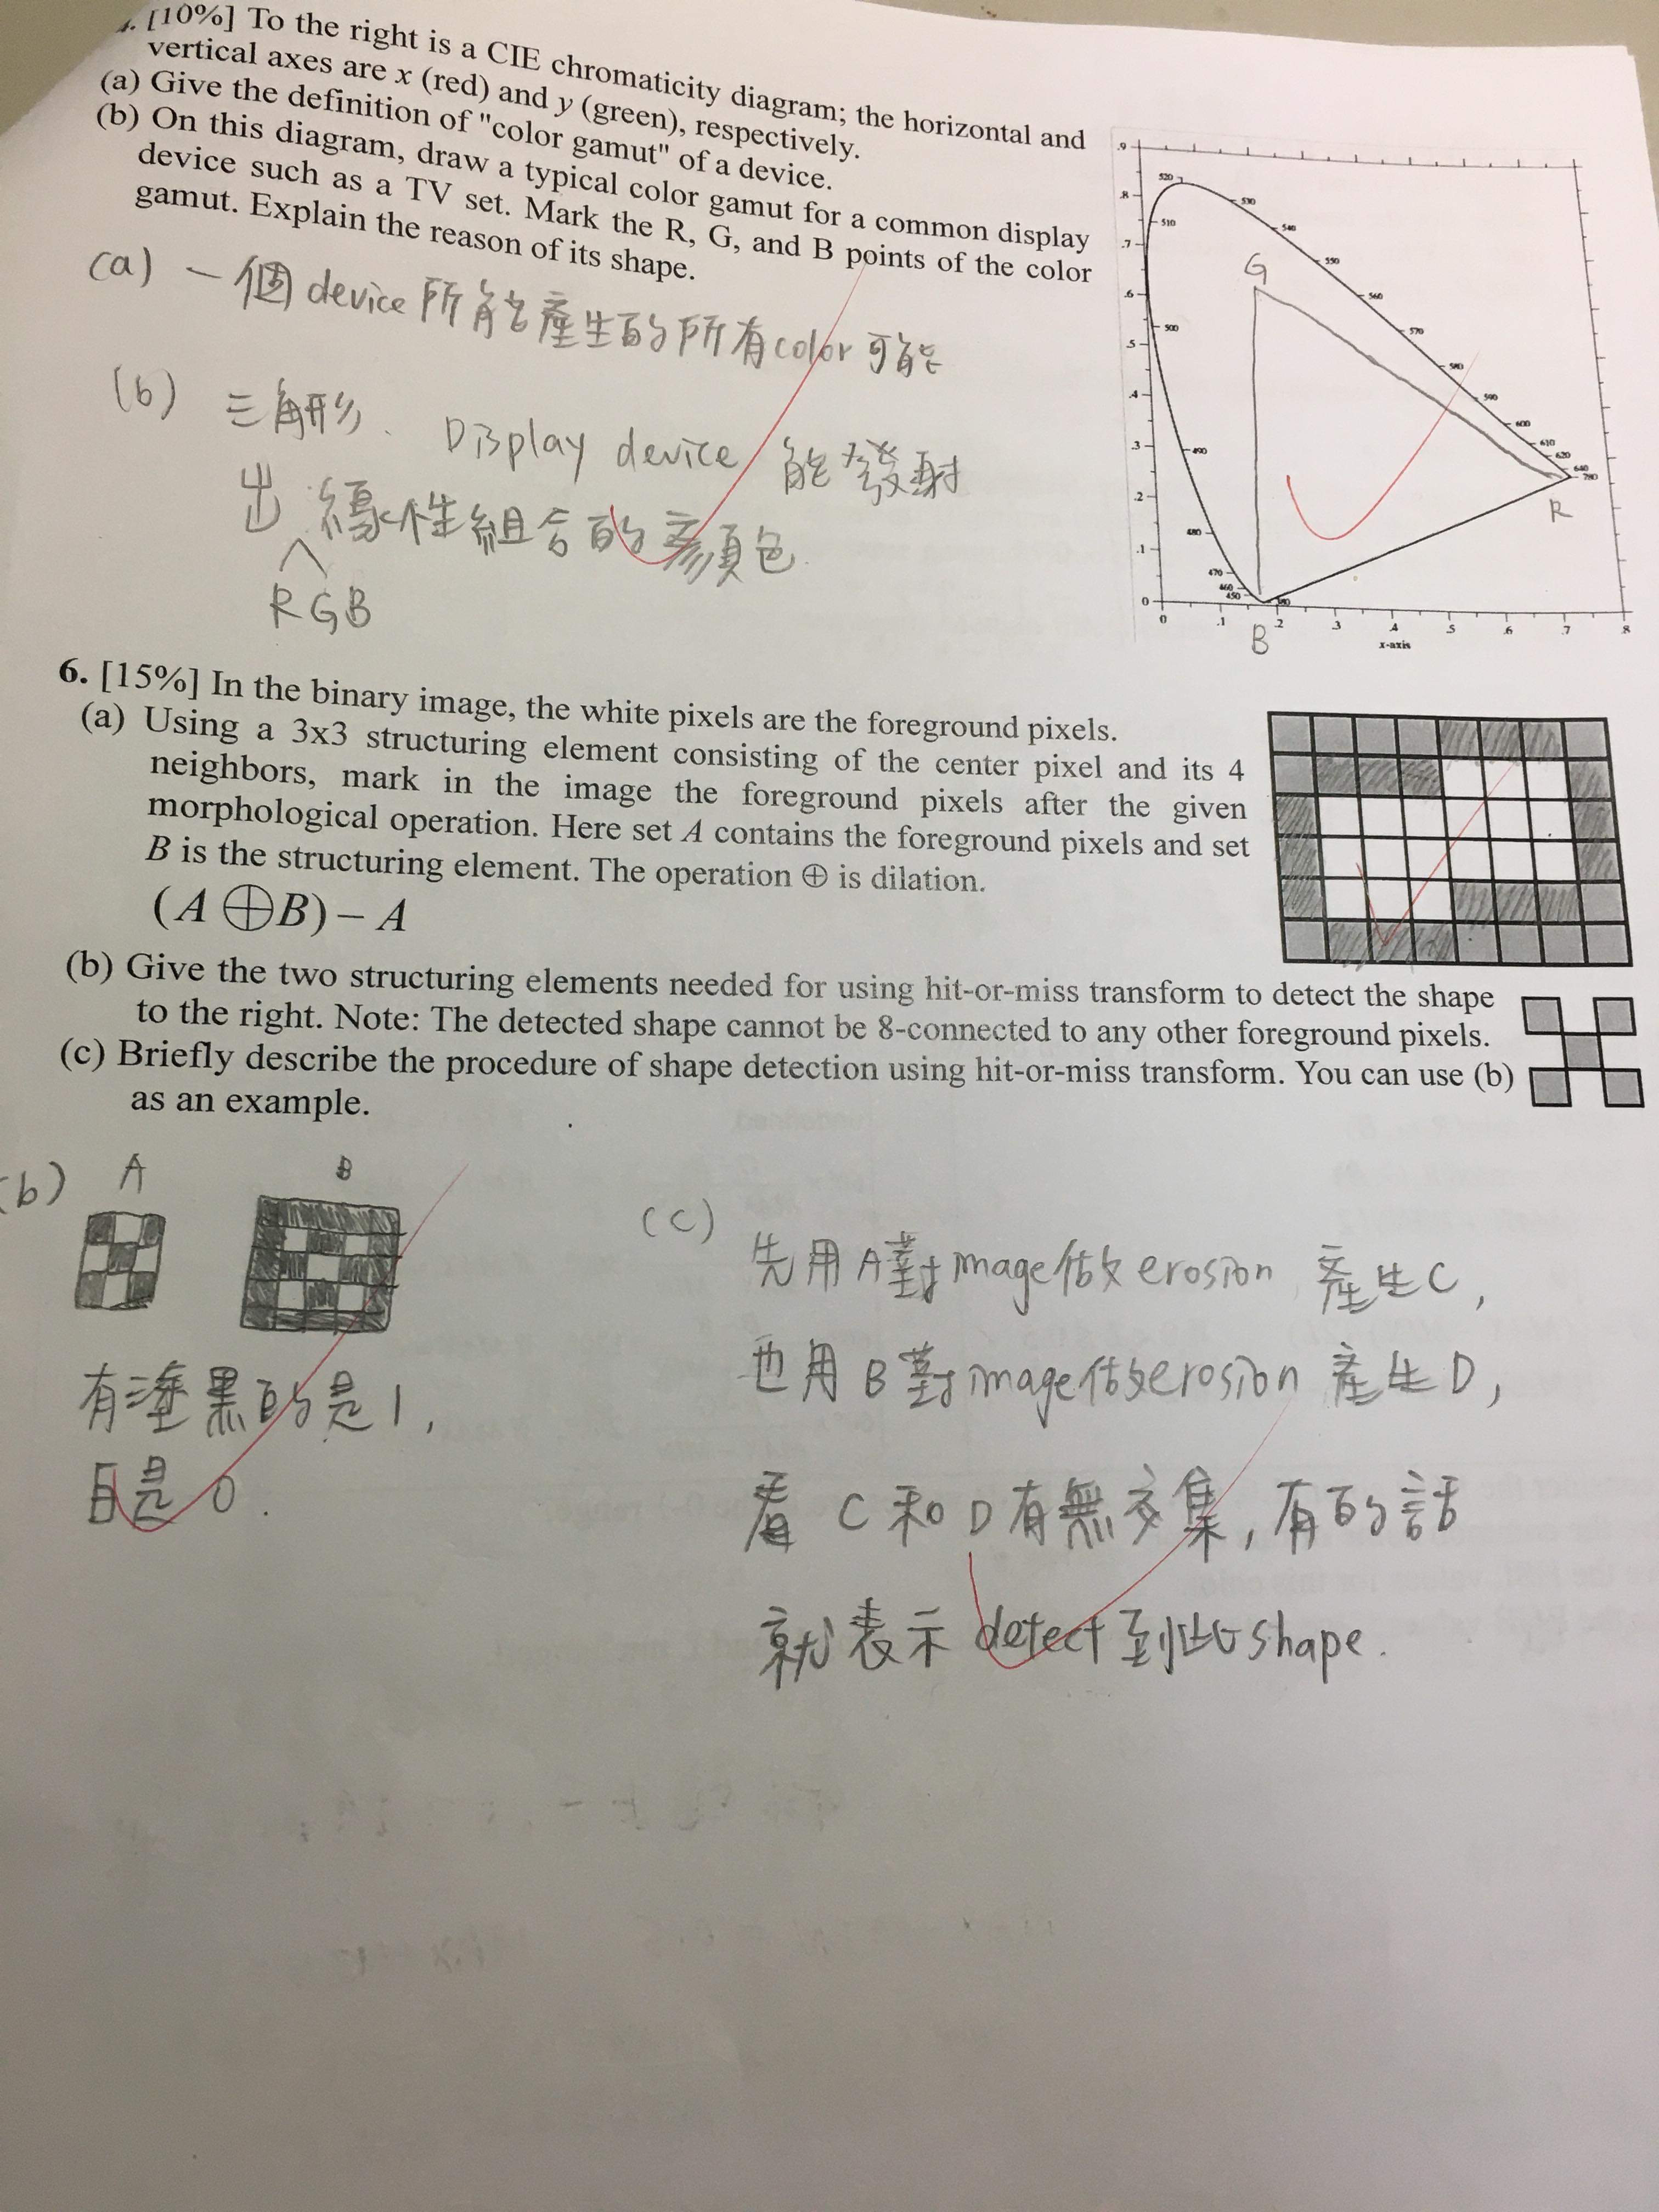 [10%] To the right is a CIE chromaticity diagram; the horizontal and
vertical axes are x (red) and y (green), respectively.
(a) Give the definition of "color gamut" of a device.
(b) On this diagram, draw a typical color gamut for a common display
device such as a TV set. Mark the R, G, and B points of the color
gamut. Explain the reason of its shape.
(a) 一個device所能產生的所有color可能
(b) 三角形、Display device 能發射
出 線性組合的顏色
RGB
.9
.8
.7
.6
.5
.4
.3
.2
.1
0
0 .1 .2 .3 .4 .5 .6 .7 .8
x-axis
520
530
540
550
560
570
580
590
600
610
620
640
780
510
500
490
480
470
460
450
380
G
R
B
6. [15%] In the binary image, the white pixels are the foreground pixels.
(a) Using a 3x3 structuring element consisting of the center pixel and its 4
neighbors, mark in the image the foreground pixels after the given
morphological operation. Here set A contains the foreground pixels and set
B is the structuring element. The operation ⊕ is dilation.
(A ⊕ B) – A
(b) Give the two structuring elements needed for using hit-or-miss transform to detect the shape
to the right. Note: The detected shape cannot be 8-connected to any other foreground pixels.
(c) Briefly describe the procedure of shape detection using hit-or-miss transform. You can use (b)
as an example.
(b) A B
有塗黑的是1,
白是0.
(c)
先用A對image做erosion 產生C,
也用B對image做erosion 產生D,
看 C和D有無交集,有的話
就表示 detect到此shape.